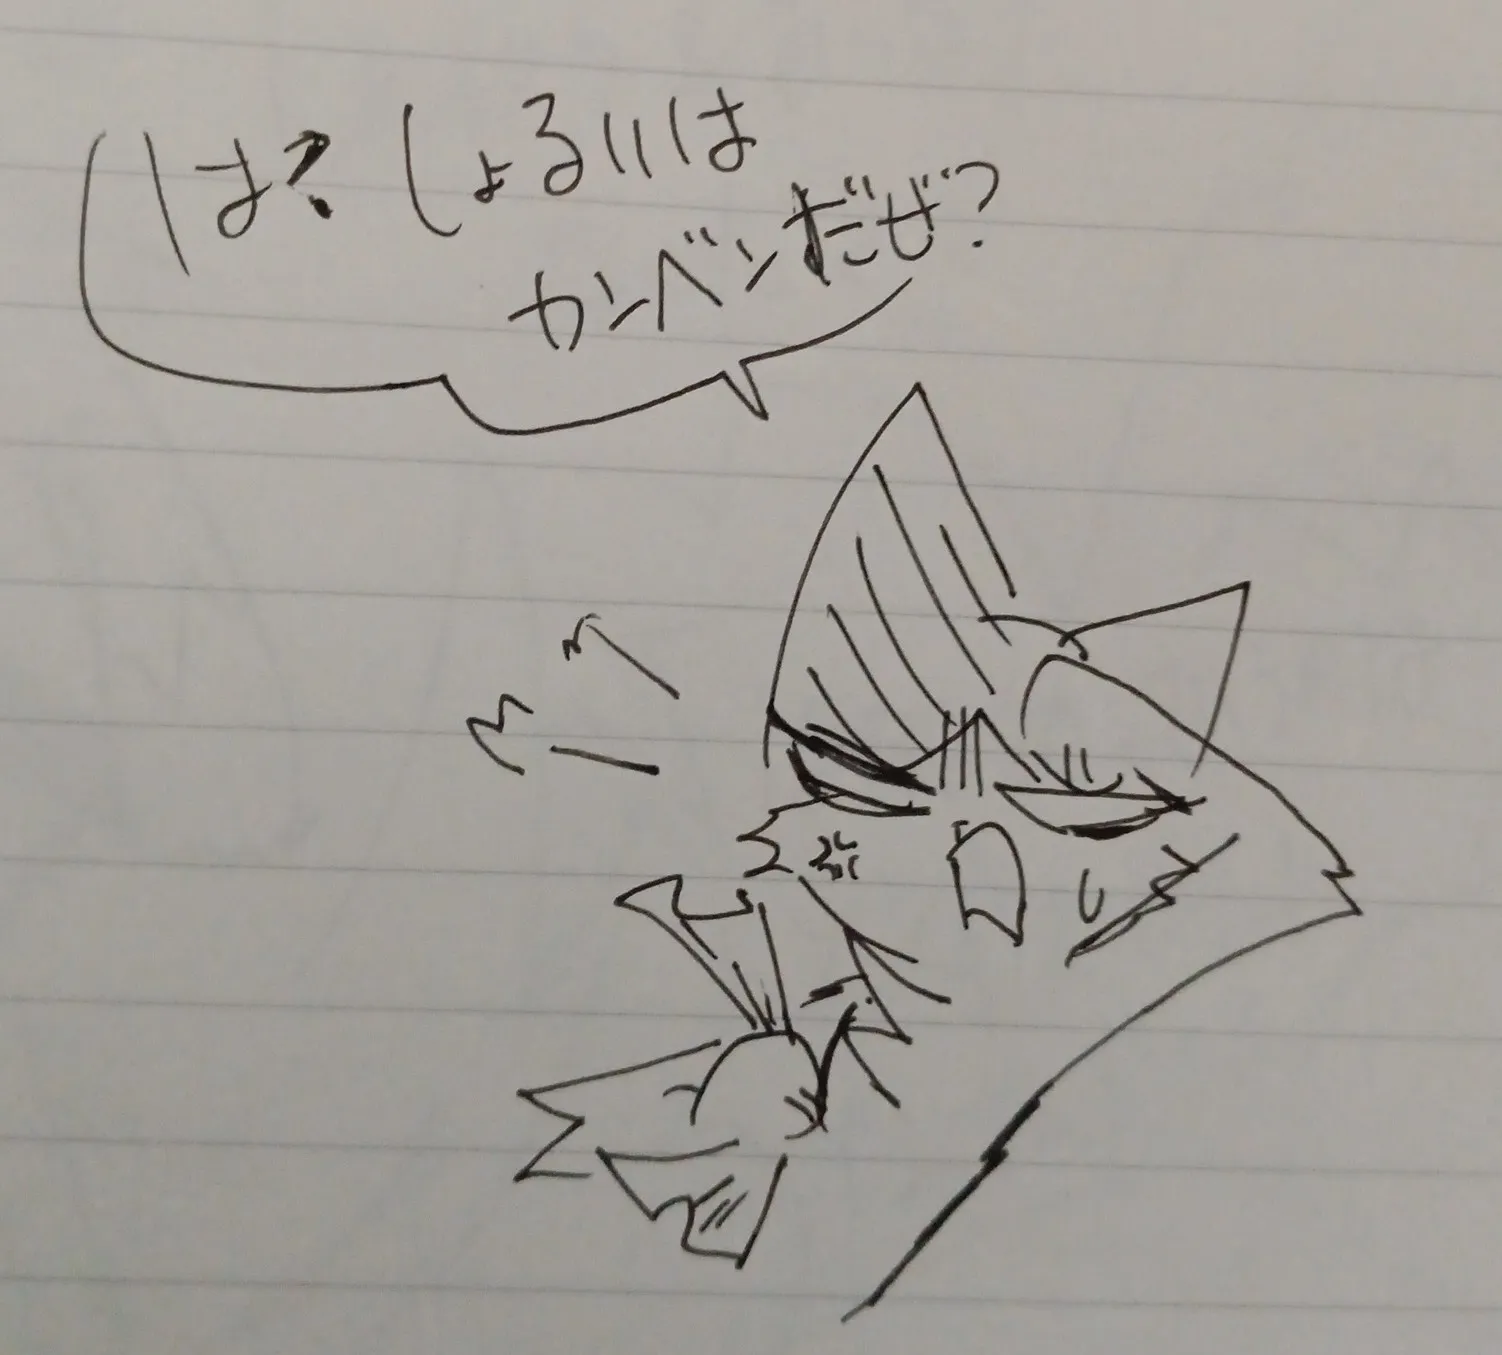 は？しょるいは
カンベンだぜ？